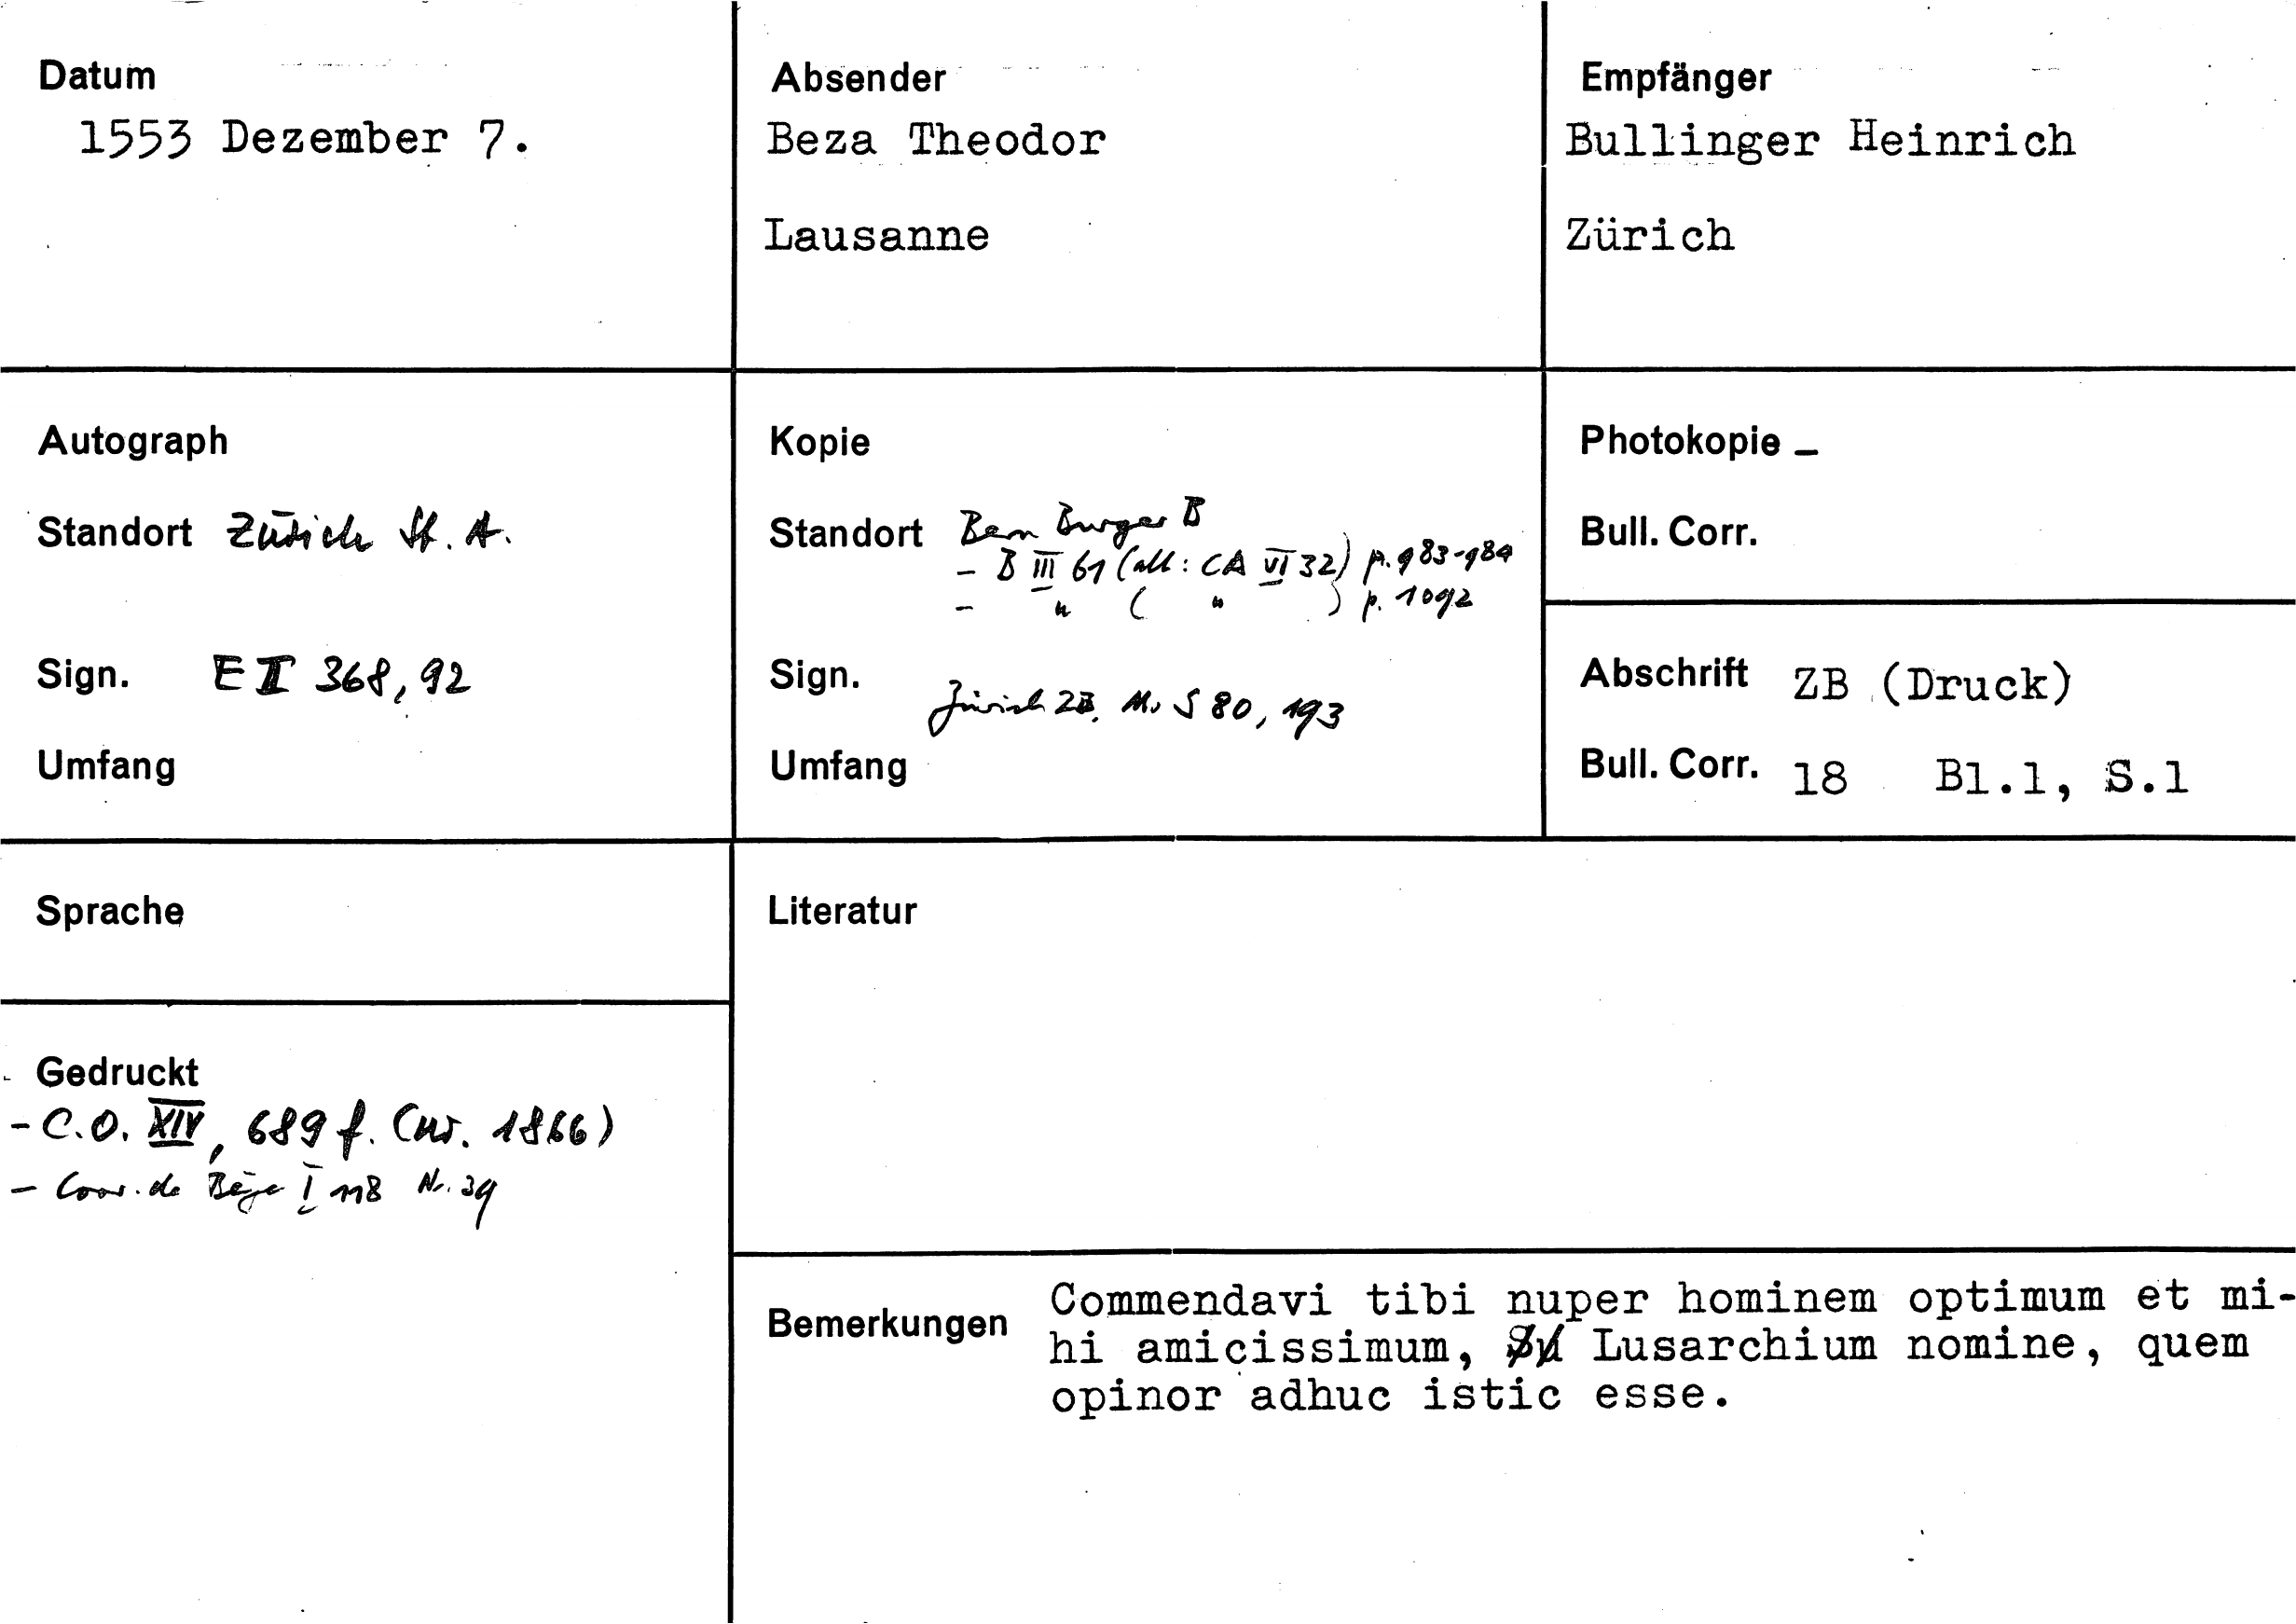 Datum
1553 Dezember 7.
Absender
Beza Theodor
Lausanne
Empfänger
Bullinger Heinrich
Zürich
Autograph
Standort Zürich St. A.
Sign. E II 368, 92
Umfang
Kopie
Standort Bern Burger B
- B III 61 (alt: CA VI 32) p. 983-984
- " ( " ) p. 1092
Sign.
Zürich ZB, Ms S 80, 193
Umfang
Photokopie -
Bull. Corr.
Abschrift ZB (Druck)
Bull. Corr. 18 Bl.1, S.1
Sprache
Gedruckt
- C.O. XIV, 689 f. (nr. 1866)
- Corr. de Bèze I 118 Nr. 39
Literatur
Bemerkungen Commendavi tibi nuper hominem optimum et mi-
hi amicissimum, Lusarchium nomine, quem
opinor adhuc istic esse.